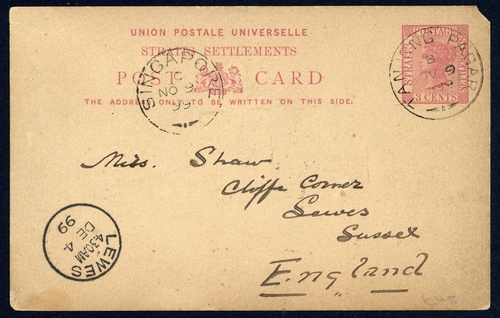 UNION POSTALE UNIVERSELLE
STRAITS SETTLEMENTS
POST CARD
THE ADDRESS ONLY TO BE WRITTEN ON THIS SIDE.
SINGAPORE
C
NO 9
99
TANJONG PAGAR
STRAITS SETTLEMENTS
3 CENTS
Miss. Shaw
Cliffe Corner
Lewes
Sussex
England
LEWES
4.30AM
DE 4
99